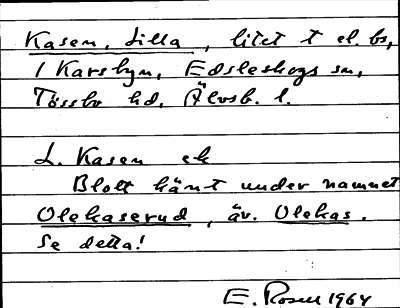 Kasen, Lilla, litet t el. bs,
i Karsbyn, Edsleskogs sn,
Tössbo hd, Älvsb. l.
L. Kasen el
Blott känt under namnet
Olekaserud, äv. Olekas.
Se detta!
E. Rosell 1964